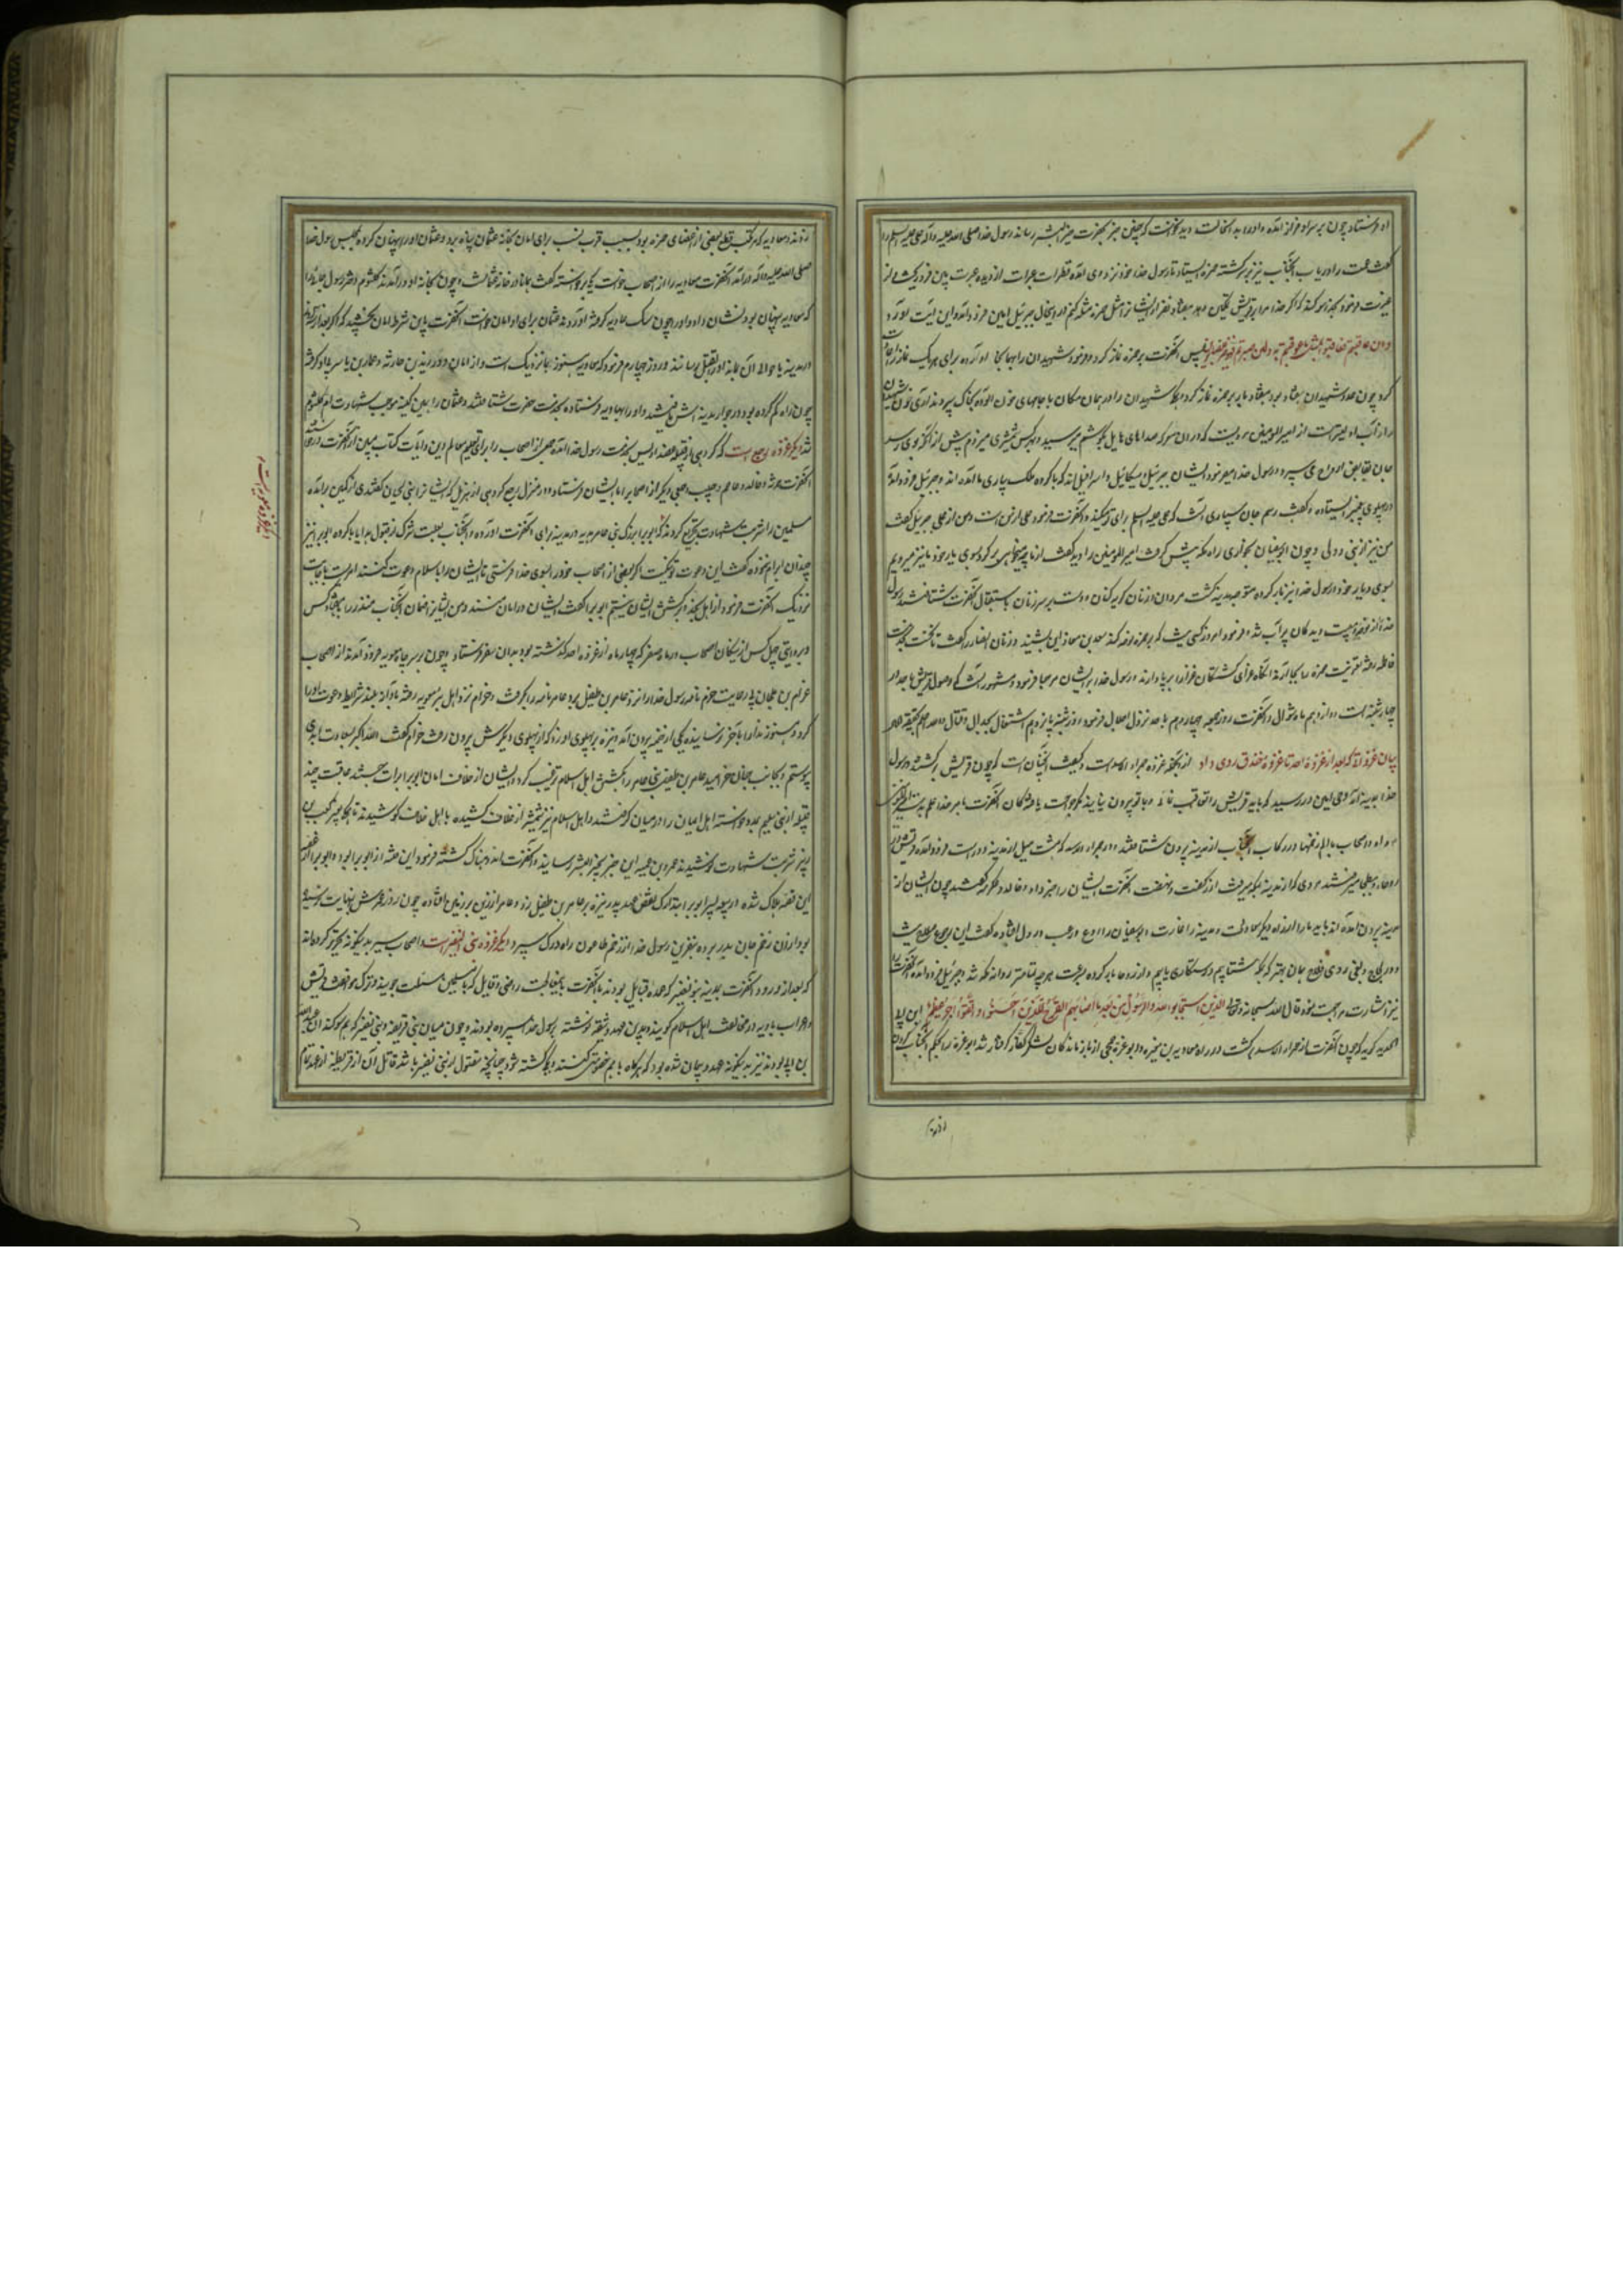 او فرستاد چون بر سر او فراز آمد و او را بدان حالت دید نخواست که چنین خبر بحضرت خیر البشر رساند رسول خدا صلی الله علیه وآله علی علیه السلم را
گفت عمت را دریاب آنجناب نیز بر سر کشته حمزه بایستاد تا رسول خدا خود نزد وی آمده قطرات عبرات از دیده عبرت بین فرو ریخت و از
غیرت فرمود بخدا سوگند که اگر خدا مرا بر قریش تمکین دهد هفتاد نفر از ایشانرا مثل حمزه مثله کنم در اینحال جبرئیل امین فرود آمد و این آیت آورد
وان عاقبتم فعاقبوا بمثل ما عوقبتم به ولئن صبرتم لهو خیر للصابرین پس آنحضرت بر حمزه نماز کرد و فرمود شهیدان را بهمانجا آورده برای هر یک نماز
کرد چون عدد شهیدان هفتاد بود هفتاد بار بر حمزه نماز کرد و همه شهیدان را در همان مکان با جامهای خون آلوده بخاک سپردند
را از آب از امیر المؤمنین مرویست که در آن معرکه صداهای هایل بگوشم میرسید و بهر کس شمشیری میزدم پیش از آنکه بوی رسد
جان بقابض ارواح می سپرد رسول خدا فرمود ایشان جبرئیل و میکائیل و اسرافیل اند که با گروه ملک بیاری ما آمده اند و جبرئیل فرود آمد
در پهلوی پیغمبر ایستاده و گفت رسم جان سپاری آنست که علی علیه السلم برای تو میکند و آنحضرت فرمود علی از من است و من از علی جبرئیل گفت
من نیز از شما و چون ابوسفیان بخواری راه مکه پیش گرفت امیر المؤمنین را دید گفت از ما چه میخواهی برگرد و سوی یار خود ما نیز میرویم
سوی دیار خود رسول خدا نیز بار کرده متوجه مدینه گشت مردان و زنان گریه کنان و دست بر سر زنان باستقبال آنحضرت شتافتند رسول
خدا از نوحه و مصیبت دیدگان پرآب شد و فرمود امروز کسی نیست که بر حمزه نوحه کند سعد بن معاذ این بشنید و زنان انصار را گفت تا نخست
فاطمه رفته تعزیت حمزه را بجا آرند آنگاه عزای کشتگان خود را بر پا دارند رسول خدا بر ایشان مرحبا فرمود و مشهور آنست که وصول قریش باحد روز
چهارشنبه است دوازدهم ماه شوال و آنحضرت روز جمعه چهاردهم باحد نزول اجلال فرمود و روز شنبه پانزدهم اشتغال بجدال و قتال
بیان غزوات که بعد از غزوهٔ احد تا غزوهٔ خندق روی داد از آنجمله غزوه حمراء الاسد است و کیفیت آنچنان است که چون قریش برگشتند و رسول
خدا بمدینه آمد وحی امین در رسید که باید قریش را تعاقب نمائی و با تو بیرون نیایند مگر جراحت یافتگان آنحضرت بامر خدا علم
داد و اصحاب با الم زخمها در رکاب آنجناب از مدینه بیرون شتافتند و در حمراء الاسد که هشت میل از مدینه دور است فرود آمد و قریش
روحا رسیدند مردی که از مدینه بمکه میرفت از کیفیت و نهضت آنحضرت ایشان را خبر داد و خالد و عکرمه گفتند چون ایشان از
مدینه بیرون آمده اند باید ما را از راه دیگر معاودت و مدینه را غارت و ابوسفیان را روع و رعب در دل افتاده گفت این
پس آنحضرت را
نیز اشارت مراجعت نمود قال الله سبحانه وتعالی الذین استجابوا لله والرسول من بعد ما اصابهم القرح للذین احسنوا منهم واتقوا اجر عظیم ابن ابی
الحدید گوید که چون آنحضرت از حمراء الاسد برگشت در راه معاویه بن مغیره و ابو عزه جمحی از باز ماندگان لشکر کفار گرفتار شد ابو عزه را بحکم آنجناب گردن
زدند و معاویه که مرتکب قطع بعضی از اعضای حمزه بود بسبب قرب نسب برای امان بخانه عثمان پناه برد و عثمان او را پنهان کرده بمجلس رسول خدا
صلی الله علیه وآله در آمد آنحضرت معاویه را از اصحاب خواست یکی برخواسته گفت همانا در خانه عثمانست و چون بخانه او در آمدند ام کلثوم دختر رسول خدا جائیرا
که معاویه پنهان بود نشان داد و او را چون سگ معاویه گرفته آوردند عثمان برای او امان خواست آنحضرت باین شرط امان بخشید که اگر بعد از سه روز
در مدینه یا حوالی آن بماند او را بقتل رسانند و روز چهارم فرمود که معاویه هنوز بما نزدیک است و از امان دور زید بن حارثه و عمار بن یاسر پی او گرفته
چون راه گم کرده بود در جوار مدینه اش یافتند و او را بهاویه فرستاده بخدمت حضرت شتافتند و عثمان را بهمین کینه موجب شهادت ام کلثوم
شد دیگر غزوه رجیع است که گروهی از قبیله عضل و دیش بخدمت رسول خدا آمده جمعی از اصحاب را برای تعلیم معالم دین و آیات کتاب مبین از آنحضرت درخواستند
آنحضرت مرثد و خالد و عاصم و خبیب و جمعی دیگر از اصحاب با ایشان فرستاد و در منزل رجیع گروهی از هذیل که ایشانرا بنی لحیان گفتندی از کمین برآمده
مسلمین را شربت شهادت تجریع کردند گویند ابوبراء بزرگ بنی عامر هدیه در مدینه برای آنحضرت آورده و آنجناب بعلت شرک از قبول هدایا ابا کرده ابوبراء نیز
چندان ابرام نموده گفت این دعوت تو نیکست اگر بعضی از اصحاب خود را بسوی نجد فرستی تا ایشان را باسلام دعوت کنند امید است باجابت
نزدیک آنحضرت فرمود از اهل نجد و سرکشی ایشان ایمن نیستم ابوبراء گفت ایشان در امان منند و من ایشانرا ضامن آنجناب منذر را با هفتاد کس
و بروایتی چهل کس از نیکان اصحاب در ماه صفر که چهار ماه از غزوه احد گذشته بود بدان سفر فرستاد و چون بر سر چاه معونه فرود آمدند از اصحاب
حرام بن ملحان پی رعایت حزم نامه رسول خدا را نزد عامر بن طفیل برد عامر نامه را نگرفت و حرام نزد اهل بئر معونه رفته باواز بلند شرایط دعوت ادا
کرد و هنوز ندا را بآخر نرسانیده یکی از خیمه بیرون آمد و نیزه بر پهلوی او زد که از پهلوی دیگرش بیرون رفت حرام گفت الله اکبر بسعادت ابدی
پیوستم و بجانب جنان خرامید و عامر بن طفیل بنی عامر را بکشتن اهل اسلام ترغیب کرد و ایشان از خلاف امان ابوبراء برائت جستند عاقبت چند
قبیله از بنی سلیم بمدد خواسته اهل ایمان را در میان گرفتند و اهل اسلام نیز شمشیر از غلاف کشیده با اهل خلاف کوشیدند تا همه بجز کعب بن
زید شربت شهادت نوشیدند عمرو بن امیه این خبر بخیر البشر رسانید و آنحضرت اندوهناک گشته فرمود این فتنه از ابوبراء بود و ابوبراء از غصه
این قصه هلاک شده و ربیعه پسر ابوبراء بتدارک نقض عهد پدر نیزه بر عامر بن طفیل زد و عامر از زین بر زمین افتاده چون روز عمرش بنهایت نرسیده
بود از آن زخم جان بدر برده بنفرین رسول خدا از زخم طاعون راه درک سپرد دیگر غزوه بنی النضیر است و اصحاب سیر بدینگونه تحریر کرده اند
که بعد از ورود آنحضرت بمدینه بنو نضیر که عمده قبایل بودند با آنحضرت بمصالحت راضی و قایل که با مسلمین مسالمت جویند و ترک موافقت قریش
و اعراب بادیه در مخالفت اهل اسلام گویند و بدین عهد وثیقه نوشته برسول خدا سپرده بودند و چون میان بنی قریظه و بنی نضیر که هم سوگند ان عبدالله
بن ابی بودند نیز بدینگونه عهد و پیمان شده بود که هرگاه با هم خصومتی کنند و یکی کشته شود چنانچه مقتول از بنی نضیر باشد قاتل آن از قریظه